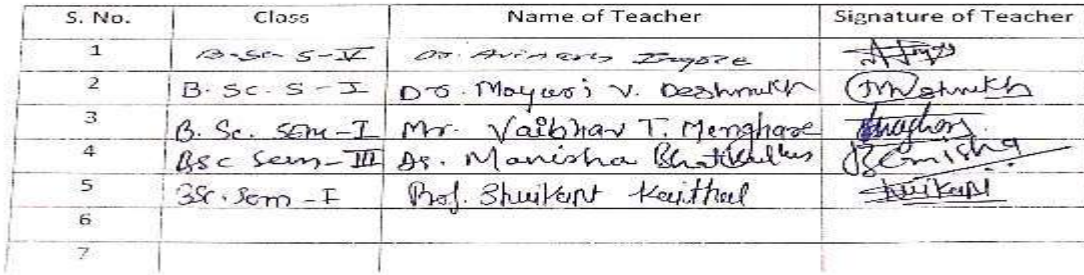 S. No. Class Name of Teacher Signature of Teacher
1 B.Sc S-V Dr. Avinash Ingole
2 B. Sc. S - I Dr. Mayuri V. Deshmukh
3 B. Sc. Sem-I Mr. Vaibhav T. Menghare
4 BSc Sem-III Dr. Manisha
5 BSc. Sem - I Prof. Shrikant Kaithal Shrikant
6
7